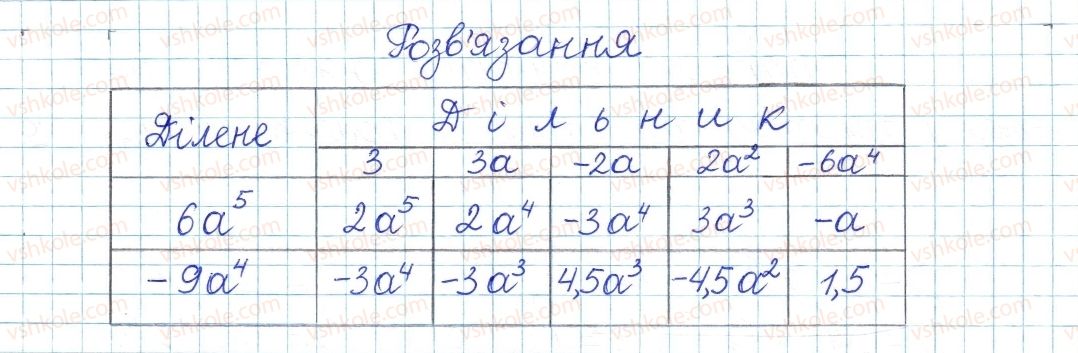 Розв'язання
Ділене Дільник
3 3a -2a 2a² -6a⁴
6a⁵ 2a⁵ 2a⁴ -3a⁴ 3a³ -a
-9a⁴ -3a⁴ -3a³ 4,5a³ -4,5a² 1,5
vshkole.com